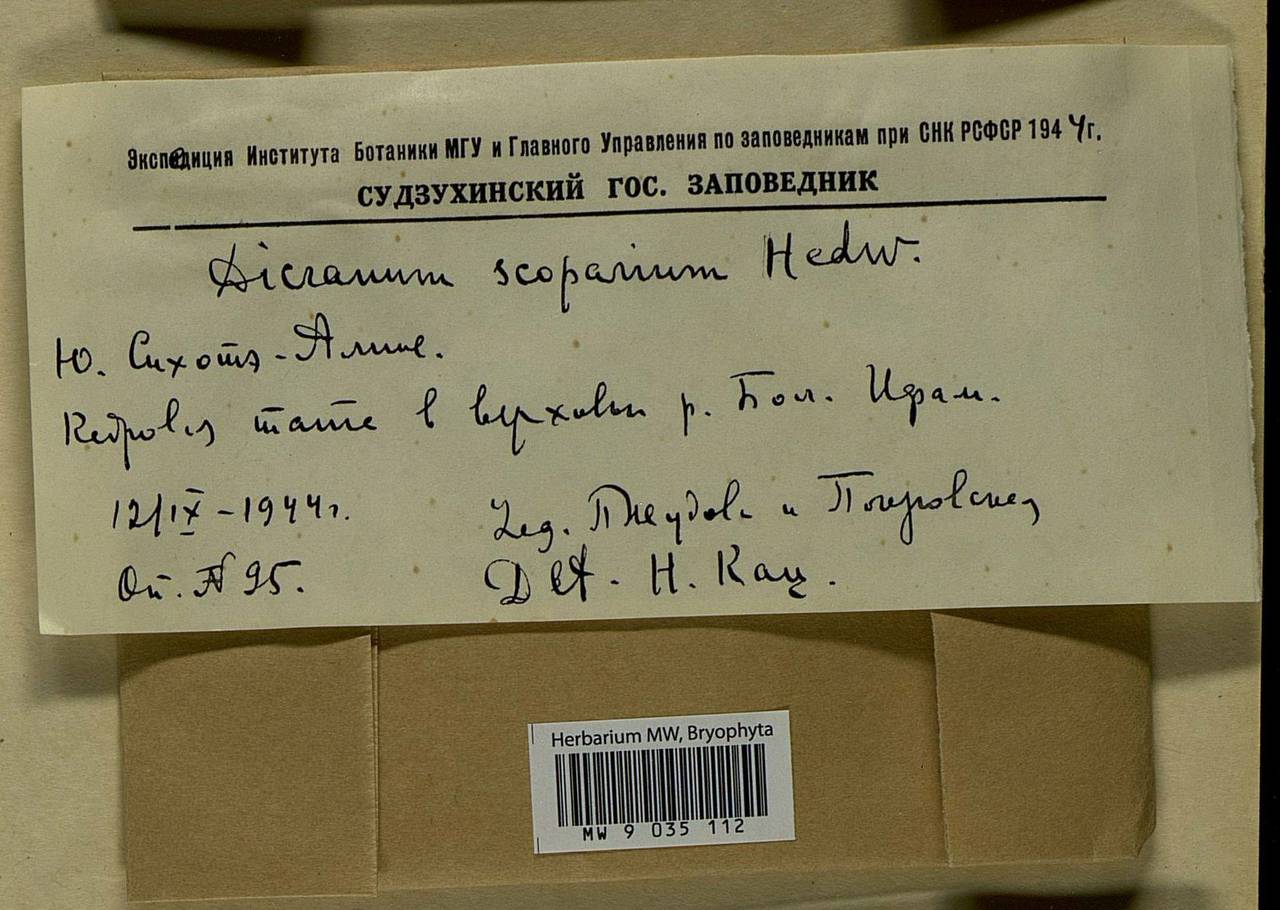 Экспедиция Института Ботаники МГУ и Главного Управления по заповедникам при СНК РСФСР 1944г.
СУДЗУХИНСКИЙ ГОС. ЗАПОВЕДНИК
Dicranum scoparium Hedw.
Ю. Сихотэ-Алинь.
Кедровая в верховьи р. Бол.
12/IX-1944г.
Оп. № 95.
Лед. и Покровская
Det. Н. Кац.
Herbarium MW, Bryophyta
MW 9 035 112